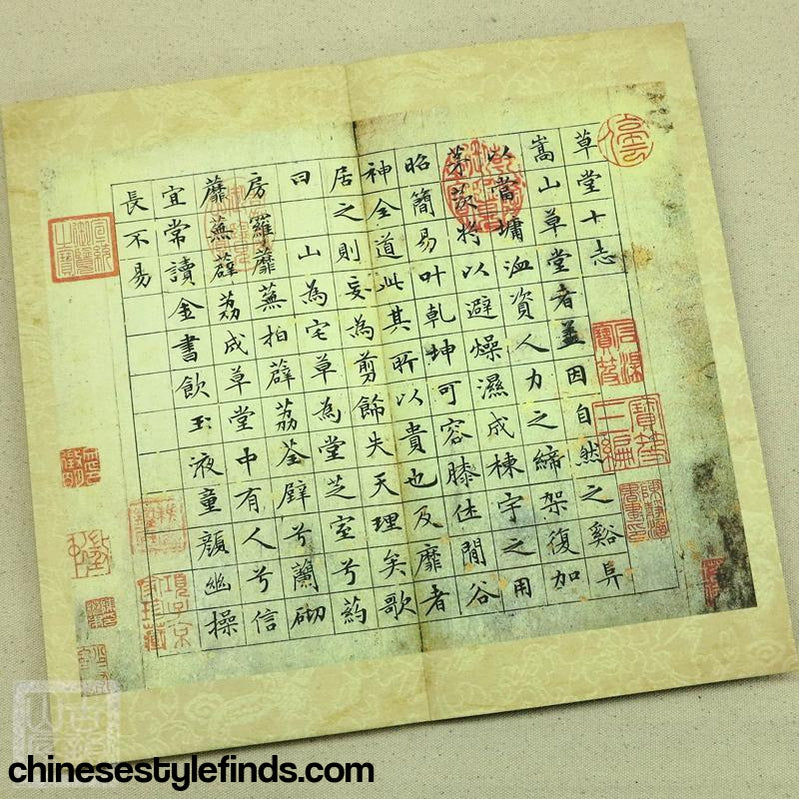 草堂十志
嵩山草堂者盖因自然之谿阜
以當墉洫資人力之締架復加
茅茨將以避燥濕成棟宇之用
昭簡易叶乾坤可容膝休閒谷
神全道此其所以貴也及靡者
居之則妄為剪飾失天理矣歌
曰 山為宅草為堂芝室兮葯
房羅蘼蕪拍薜荔荃壁兮蘭砌
蘼蕪薜荔成草堂中有人兮信
宜常讀金書飲玉液童顏幽操
長不易
石渠寶笈
寶笈三編
項子京家珍藏
chinesestylefinds.com